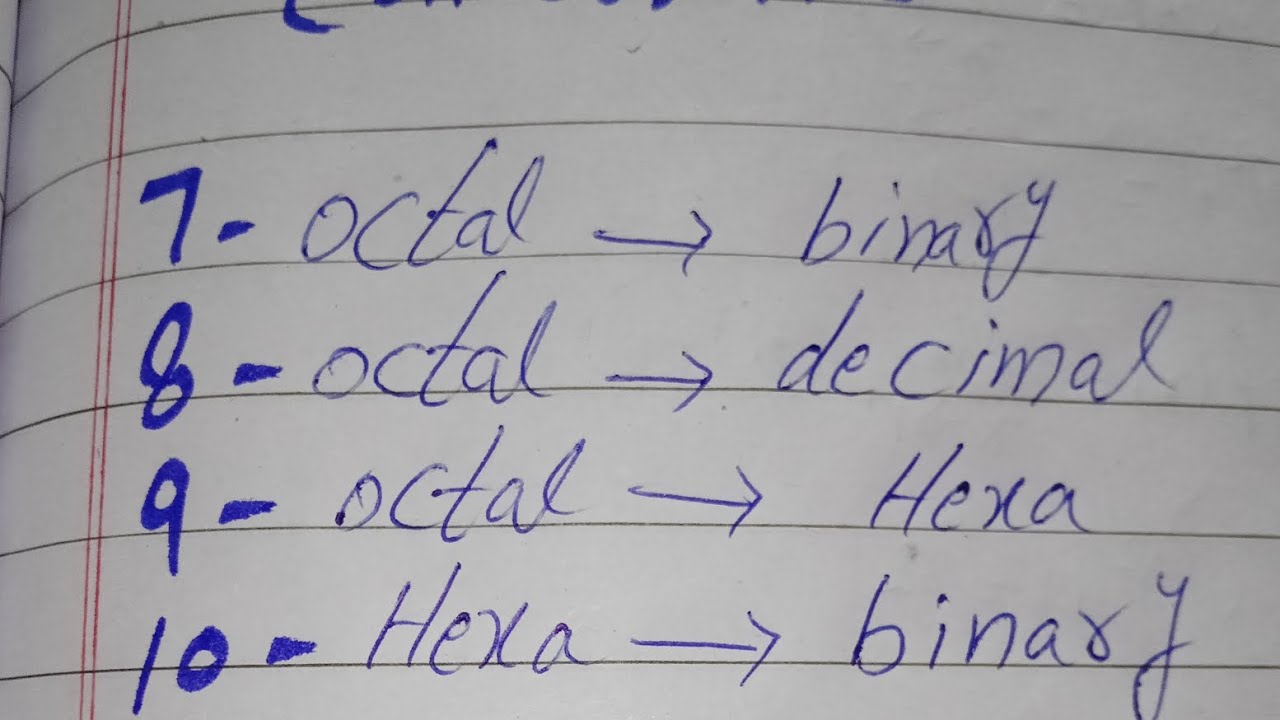 7- octal → binary
8- octal → decimal
9- octal → Hexa
10- Hexa → binary